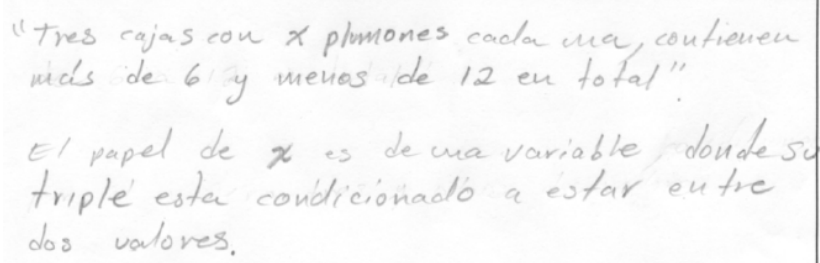 "Tres cajas con x plumones cada una, contienen
más de 6 y menos de 12 en total".
El papel de x es de una variable, donde su
triple esta condicionado a estar entre
dos valores.